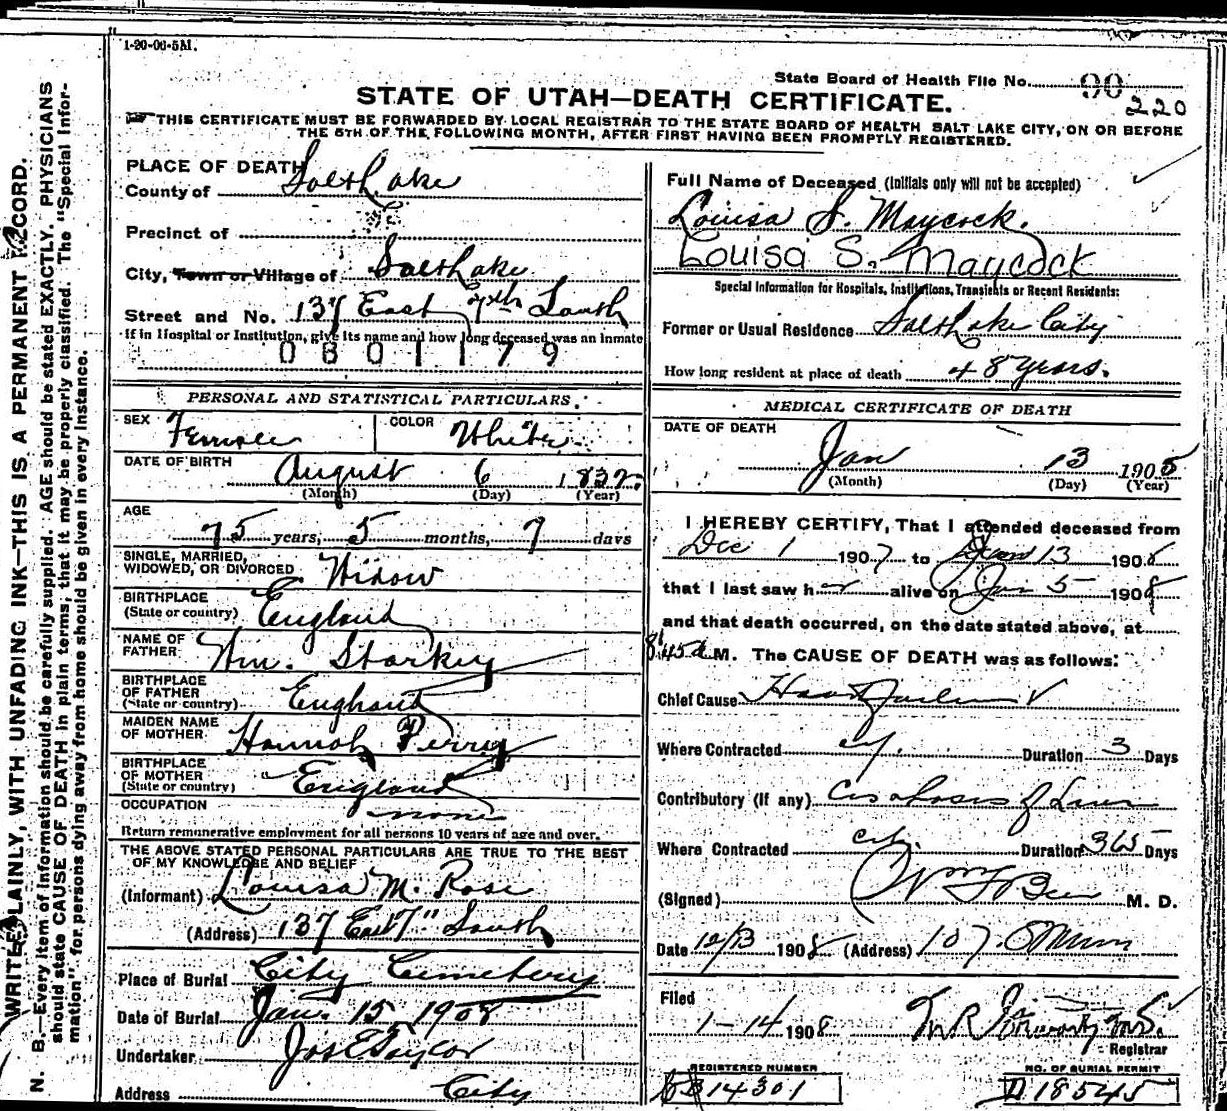 1-20-06-5M.
State Board of Health File No. 90
220
STATE OF UTAH—DEATH CERTIFICATE.
THIS CERTIFICATE MUST BE FORWARDED BY LOCAL REGISTRAR TO THE STATE BOARD OF HEALTH SALT LAKE CITY, ON OR BEFORE
THE 5TH OF THE FOLLOWING MONTH, AFTER FIRST HAVING BEEN PROMPTLY REGISTERED.
PLACE OF DEATH
County of Salt Lake
Precinct of
City, Town or Village of Salt Lake
Street and No. 137 East 7th South
If in Hospital or Institution, give its name and how long deceased was an inmate
0801179
PERSONAL AND STATISTICAL PARTICULARS.
SEX Female COLOR White
DATE OF BIRTH August 6 1832
(Month) (Day) (Year)
AGE
75 years, 5 months, 7 days
SINGLE, MARRIED,
WIDOWED, OR DIVORCED Widow
BIRTHPLACE
(State or country) England
NAME OF
FATHER Wm. Starkey
BIRTHPLACE
OF FATHER
(State or country) England
MAIDEN NAME
OF MOTHER Hannah Perry
BIRTHPLACE
OF MOTHER
(State or country) England
OCCUPATION none
Return remunerative employment for all persons 10 years of age and over.
THE ABOVE STATED PERSONAL PARTICULARS ARE TRUE TO THE BEST
OF MY KNOWLEDGE AND BELIEF
(Informant) Louisa M. Rose
(Address) 137 East 7" South
Place of Burial City Cemetery
Date of Burial Jan. 15 1908
Undertaker Jos E Taylor
Address City
Full Name of Deceased (Initials only will not be accepted)
Louisa S. Maycock.
Louisa S. Maycock
Special Information for Hospitals, Institutions, Transients or Recent Residents:
Former or Usual Residence Salt Lake City
How long resident at place of death 48 years.
MEDICAL CERTIFICATE OF DEATH
DATE OF DEATH
Jan 13 1908
(Month) (Day) (Year)
I HEREBY CERTIFY, That I attended deceased from
Dec 1 1907 to Jan 13 1908
that I last saw her alive on Jan 5 1908
and that death occurred, on the date stated above, at
8:45 a M. The CAUSE OF DEATH was as follows:
Chief Cause Heart Failure
Where Contracted City. Duration 3 Days
Contributory (If any) Cirrhosis of Liver
Where Contracted City. Duration 365 Days
(Signed) M. D.
Date 12/13 1908 (Address) 107
Filed
1-14 1908
Registrar
REGISTERED NUMBER
14301
NO. OF BURIAL PERMIT
D 18545
WRITE PLAINLY, WITH UNFADING INK—THIS IS A PERMANENT RECORD.
N. B.—Every item of information should be carefully supplied. AGE should be stated EXACTLY. PHYSICIANS
should state CAUSE OF DEATH in plain terms, that it may be properly classified. The "Special Infor-
mation" for persons dying away from home should be given in every instance.